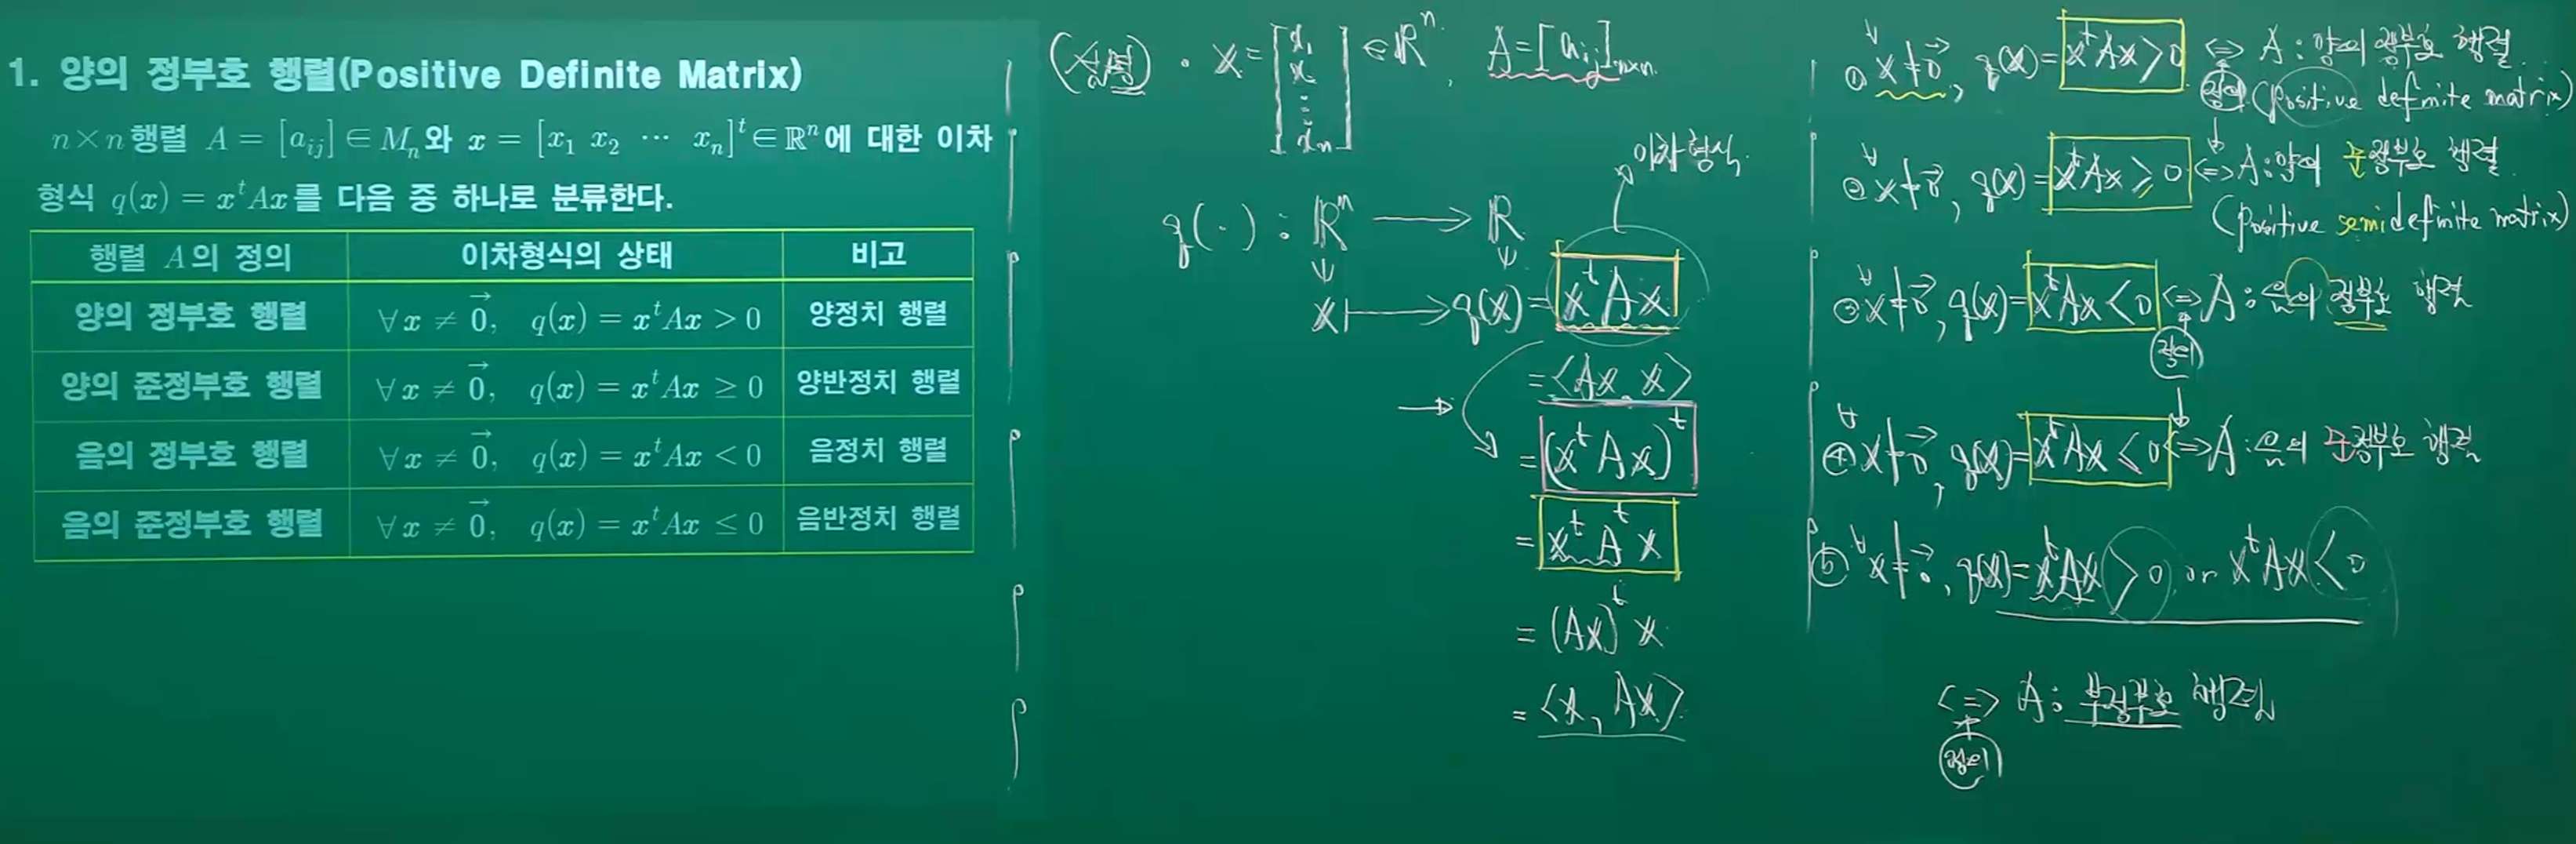 1. 양의 정부호 행렬(Positive Definite Matrix)
n×n 행렬 A = [a_ij] ∈ M_n와 x = [x_1 x_2 ⋯ x_n]^t ∈ ℝ^n에 대한 이차
형식 q(x) = x^t Ax를 다음 중 하나로 분류한다.
행렬 A의 정의 이차형식의 상태 비고
양의 정부호 행렬 ∀x ≠ 0⃗, q(x) = x^t Ax > 0 양정치 행렬
양의 준정부호 행렬 ∀x ≠ 0⃗, q(x) = x^t Ax ≥ 0 양반정치 행렬
음의 정부호 행렬 ∀x ≠ 0⃗, q(x) = x^t Ax < 0 음정치 행렬
음의 준정부호 행렬 ∀x ≠ 0⃗, q(x) = x^t Ax ≤ 0 음반정치 행렬
(설명) · x = [x_1 x ⋮ x_n] ∈ ℝ^n, A = [a_ij]_n×n
이차형식
q(·) : ℝ^n → ℝ
x ↦ q(x) = x^t Ax
= <Ax, x>
= (x^t Ax)^t
= x^t A^t x
= (Ax)^t x
= <x, Ax>
① ∀x ≠ 0⃗, q(x) = x^t Ax > 0 ⇔ A : 양의 정부호 행렬
정의 (positive definite matrix)
② ∀x ≠ 0⃗, q(x) = x^t Ax ≥ 0 ⇔ A : 양의 준정부호 행렬
(positive semidefinite matrix)
③ ∀x ≠ 0⃗, q(x) = x^t Ax < 0 ⇔ A : 음의 정부호 행렬
정의
④ ∀x ≠ 0⃗, q(x) = x^t Ax ≤ 0 ⇔ A : 음의 준정부호 행렬
⑤ ∀x ≠ 0⃗, q(x) = x^t Ax > 0 or x^t Ax < 0
⇔ A : 부정부호 행렬
정의